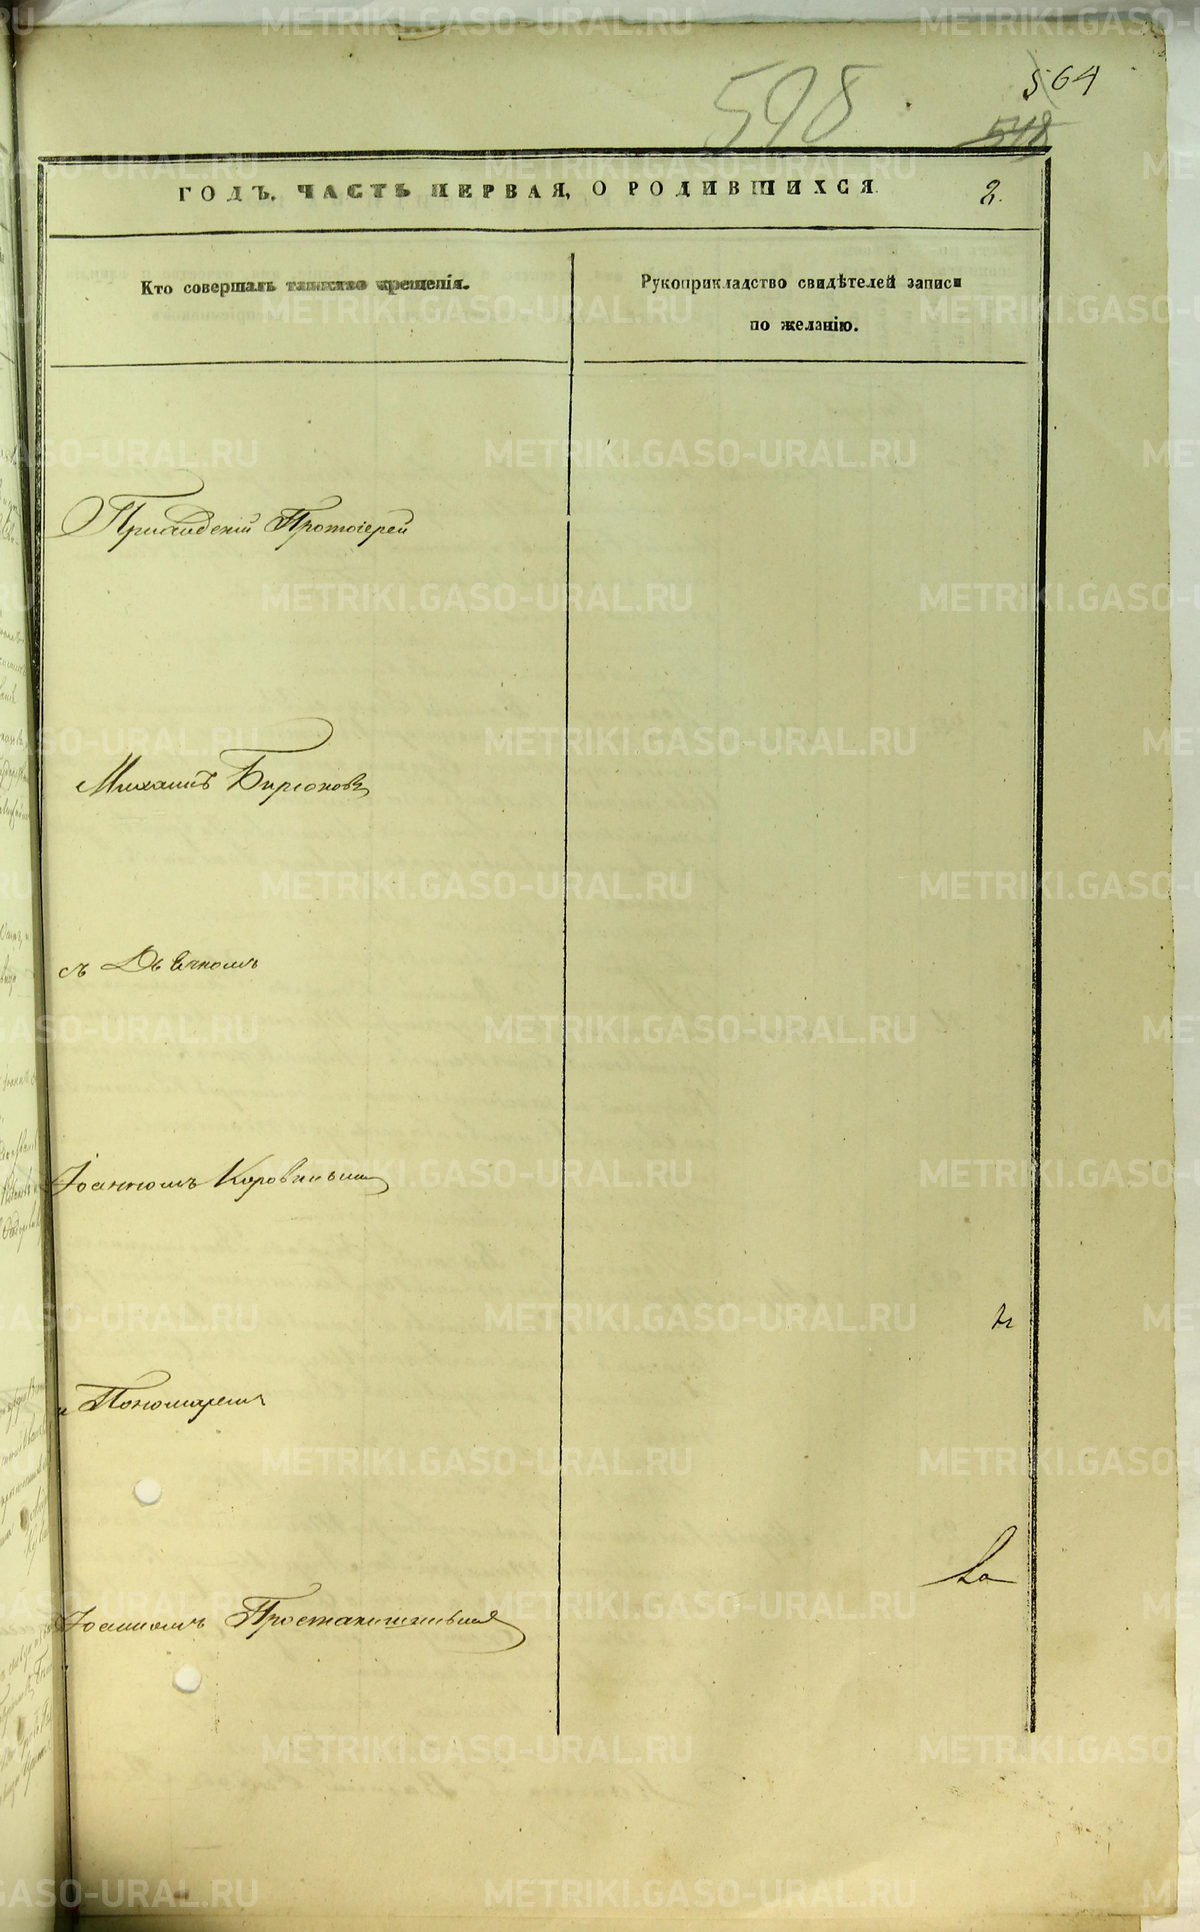 598
564
518
ГОДЪ. ЧАСТЬ ПЕРВАЯ, О РОДИВШИХСЯ.
2.
Кто совершалъ таинство крещенія.
Рукоприкладство свидѣтелей записи
по желанію.
Протоіерей
Михаилъ Бирюковъ
съ Дьячкомъ
Іоанномъ Коровинымъ
и Пономаремъ
Іоанномъ
METRIKI.GASO-URAL.RU